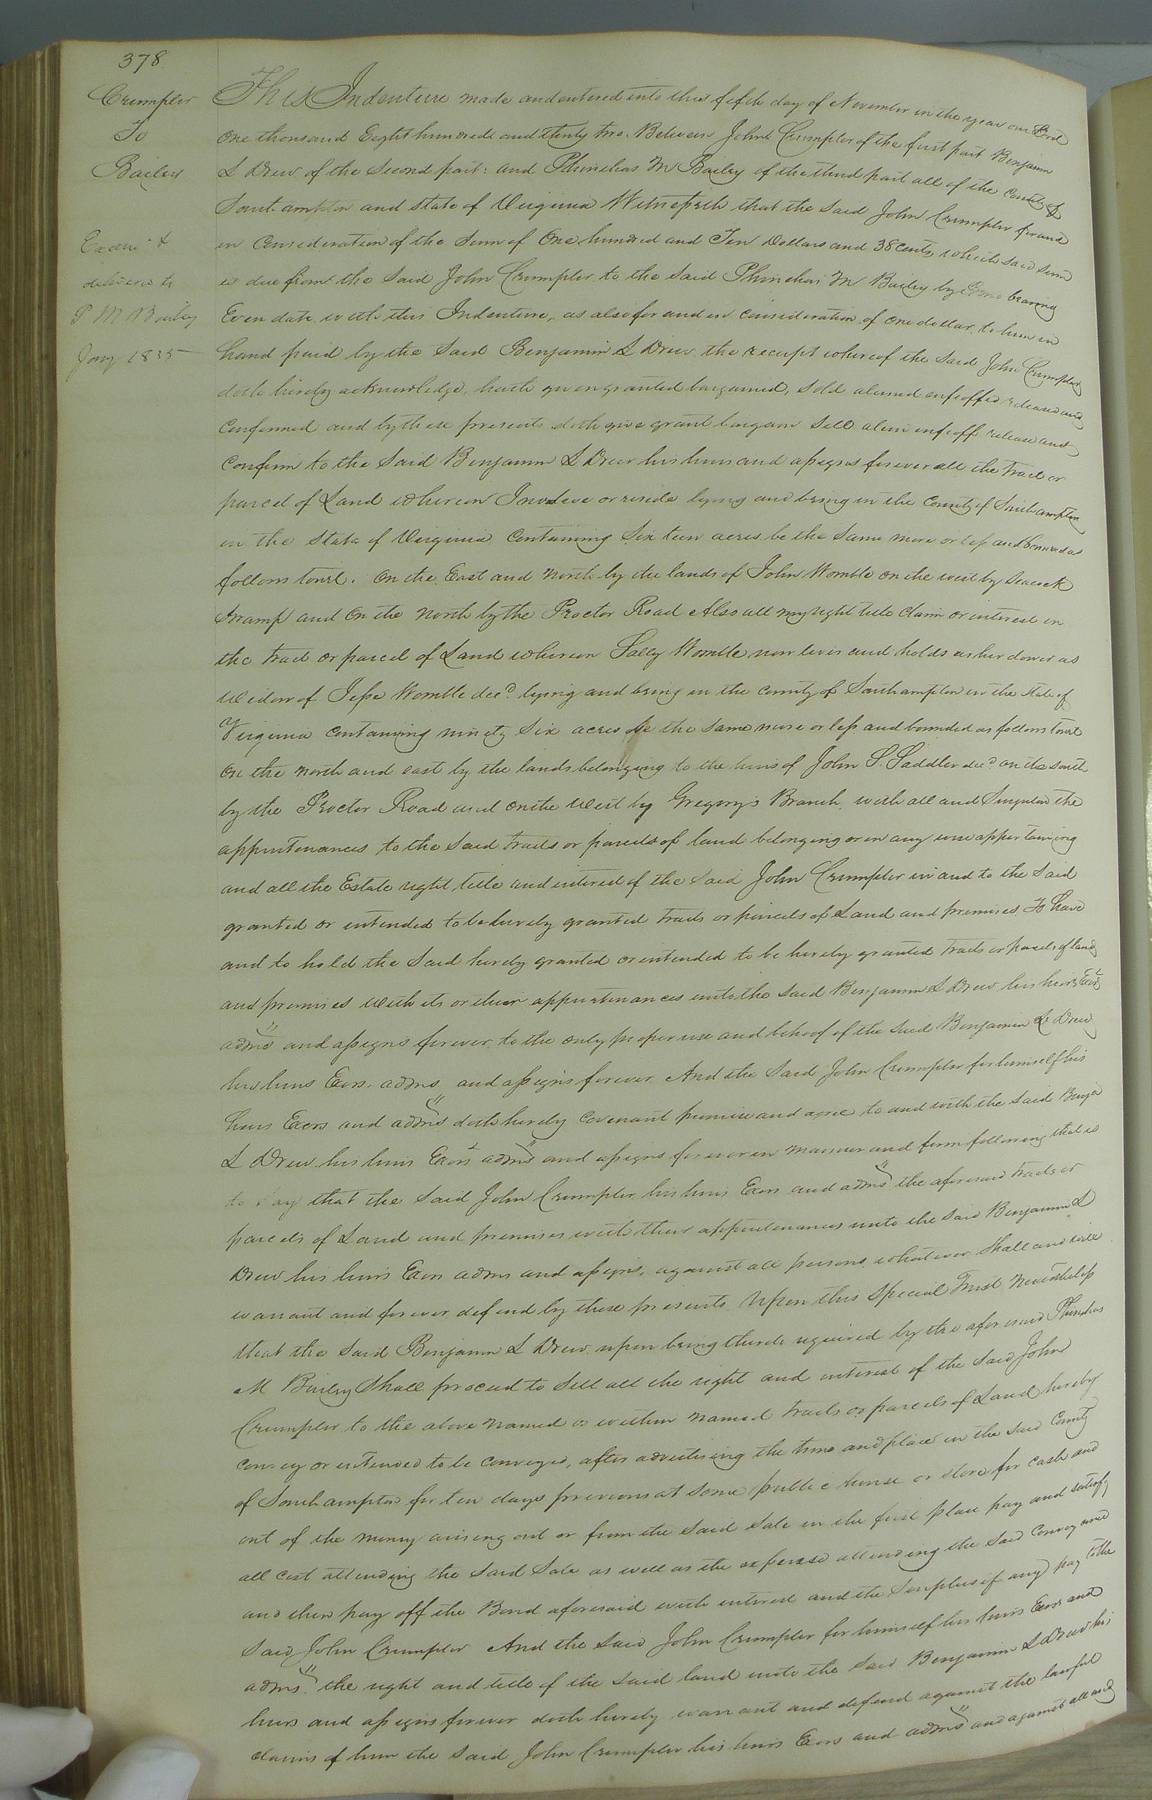 378
Crumpler
To
Bailey
Exam'd &
delivered to
P M Bailey
Jany 1835
This Indenture made and entered into this fifth day of November in the year our Lord
One thousand Eight hundred and thirty two Between John Crumpler of the first part Benjamin
L Drew of the Second part: and Phinehas M Bailey of the third part all of the County of
Southampton and State of Virginia Witnesseth that the Said John Crumpler for and
in Consideration of the Sum of One hundred and Ten Dollars and 38 cents which said sum
is due from the Said John Crumpler to the Said Phinehas M Bailey by bearing
Even date with this Indenture, as also for and in consideration of one dollar to him in
hand paid by the Said Benjamin L Drew the receipt whereof the Said John Crumpler
doth hereby acknowledge, hath given granted bargained, Sold aliened enfeoffed released and
Confirmed and by these presents doth give grant bargain Sell alien enfeoff release and
Confirm to the Said Benjamin L Drew his heirs and assigns forever all the Tract or
parcel of Land whereon I now live or reside lying and being in the County of Southampton
in the State of Virginia Containing Sixteen acres be the Same more or less and bounded as
follows towit. On the East and North by the lands of John Womble on the west by Seacock
Swamp and On the North by the Proctor Road Also all my right title Claim or interest in
the tract or parcel of Land whereon Sally Womble now lives and holds as her dower as
Widow of Jesse Womble decd. lying and being in the County of Southampton in the State of
Virginia Containing ninety Six acres be the Same more or less and bounded as follows towit
On the North and east by the lands belonging to the heirs of John S. Saddler decd on the south
by the Proctor Road and on the West by Gregory's Branch with all and Singular the
appurtenances to the Said tracts or parcels of land belonging or in any wise appertaining
and all the Estate right title and interest of the Said John Crumpler in and to the Said
granted or intended to be hereby granted tracts or parcels of Land and premises To have
and to hold the Said hereby granted or intended to be hereby granted tracts or parcels of land
and premises with its or their appurtenances unto the Said Benjamin L Drew his heirs Exors
admrs and assigns forever to the only proper use and behoof of the Said Benjamin L Drew
his heirs Exors. admrs and assigns forever And the Said John Crumpler for himself his
heirs Exors and admrs doth hereby Covenant promise and agree to and with the Said Benja
L Drew his heirs Exors admrs and assigns forever in manner and form following that is
to Say that the Said John Crumpler his heirs Exors and admrs the aforesaid tracts or
parcels of Land and premises with their appurtenances unto the Said Benjamin L
Drew his heirs Exors admrs and assigns, against all persons whatever Shall and will
warrant and forever defend by these presents. Upon this Special Trust Nevertheless
that the Said Benjamin L Drew upon being thereto required by the aforesaid Phinehas
M Bailey Shall proceed to Sell all the right and interest of the Said John
Crumpler to the above named or within named tracts or parcels of Land hereby
convey or intended to be conveyed, after advertising the time and place in the Said County
of Southampton for ten days previous at Some public house or Store for Cash and
out of the money arising out or from the Said Sale in the first place pay and satisfy
all cost attending the Said Sale as well as the expense attending the Said Conveyance
and then pay off the Bond aforesaid with interest and the Surplus if any pay to the
Said John Crumpler And the Said John Crumpler for himself his heirs Exors and
admrs. the right and title of the Said land unto the Said Benjamin L Drew his
heirs and assigns forever doth hereby warrant and defend against the lawful
claims of him the Said John Crumpler his heirs Exors and admrs and against all and